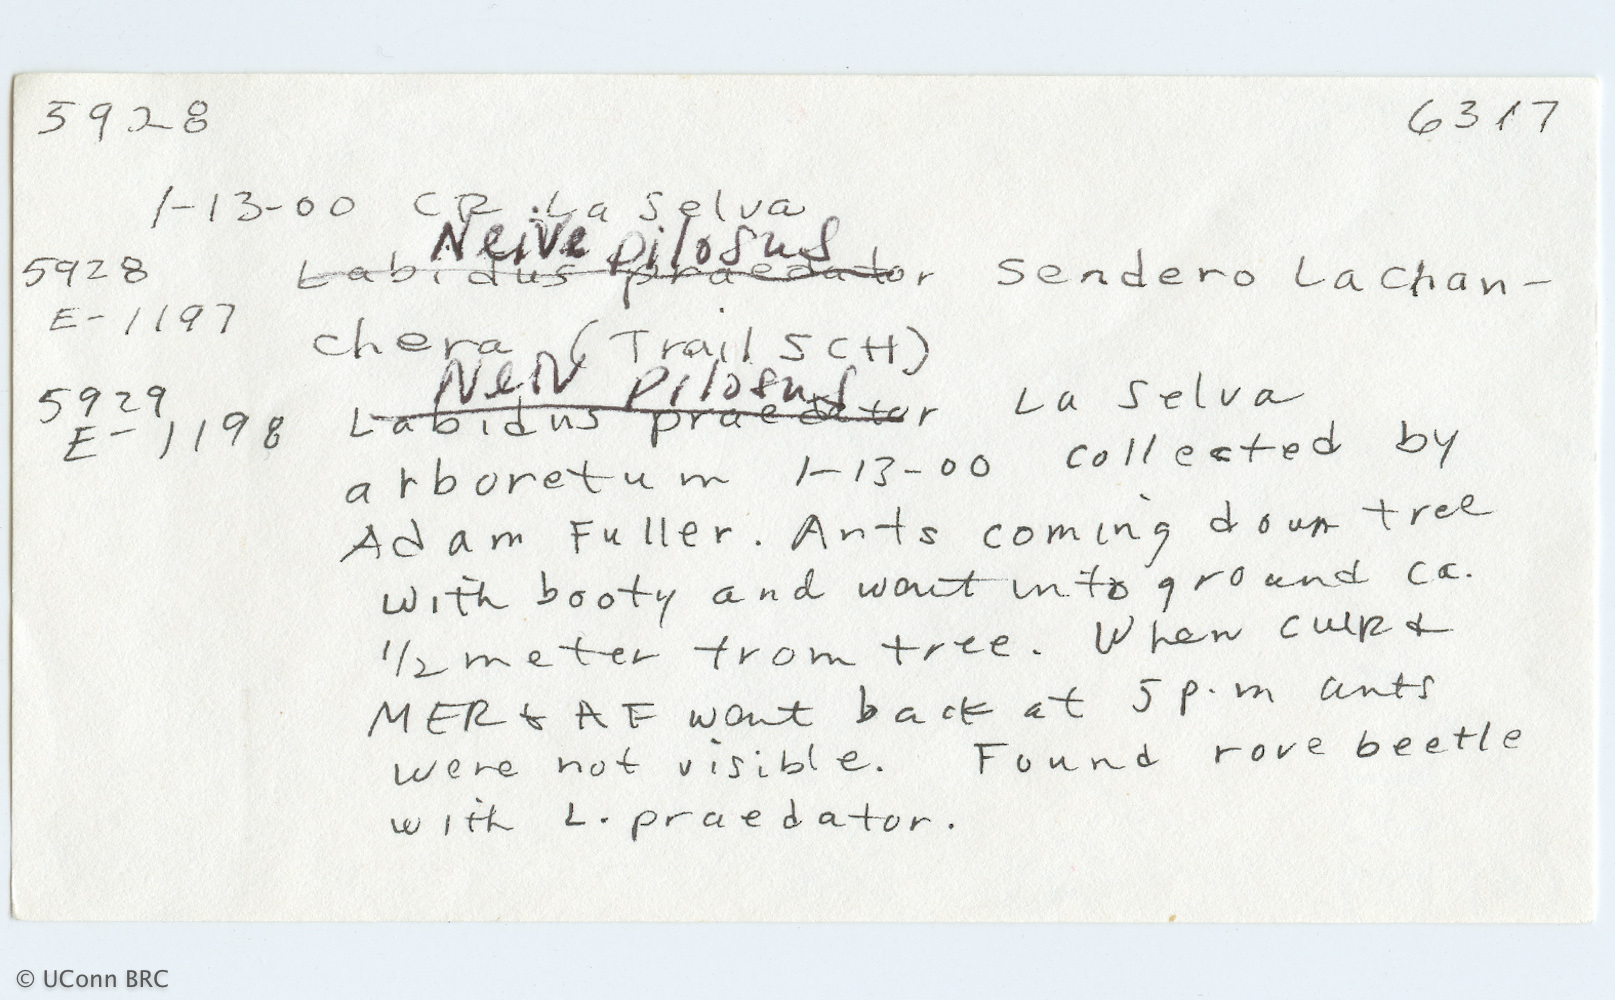 5928 6317
1-13-00 CR. La Selva
Neive pilosus
5928 Labidus praedator Sendero La Chan-
E-1197 chera (Trail SCH)
Neiv pilosus
5929 Labidus praedator La Selva
E-1198 arboretum 1-13-00 collected by
Adam Fuller. Ants coming down tree
with booty and went into ground ca.
1/2 meter from tree. When CWR &
MER & AF went back at 5 p.m ants
were not visible. Found rove beetle
with L. praedator.
© UConn BRC